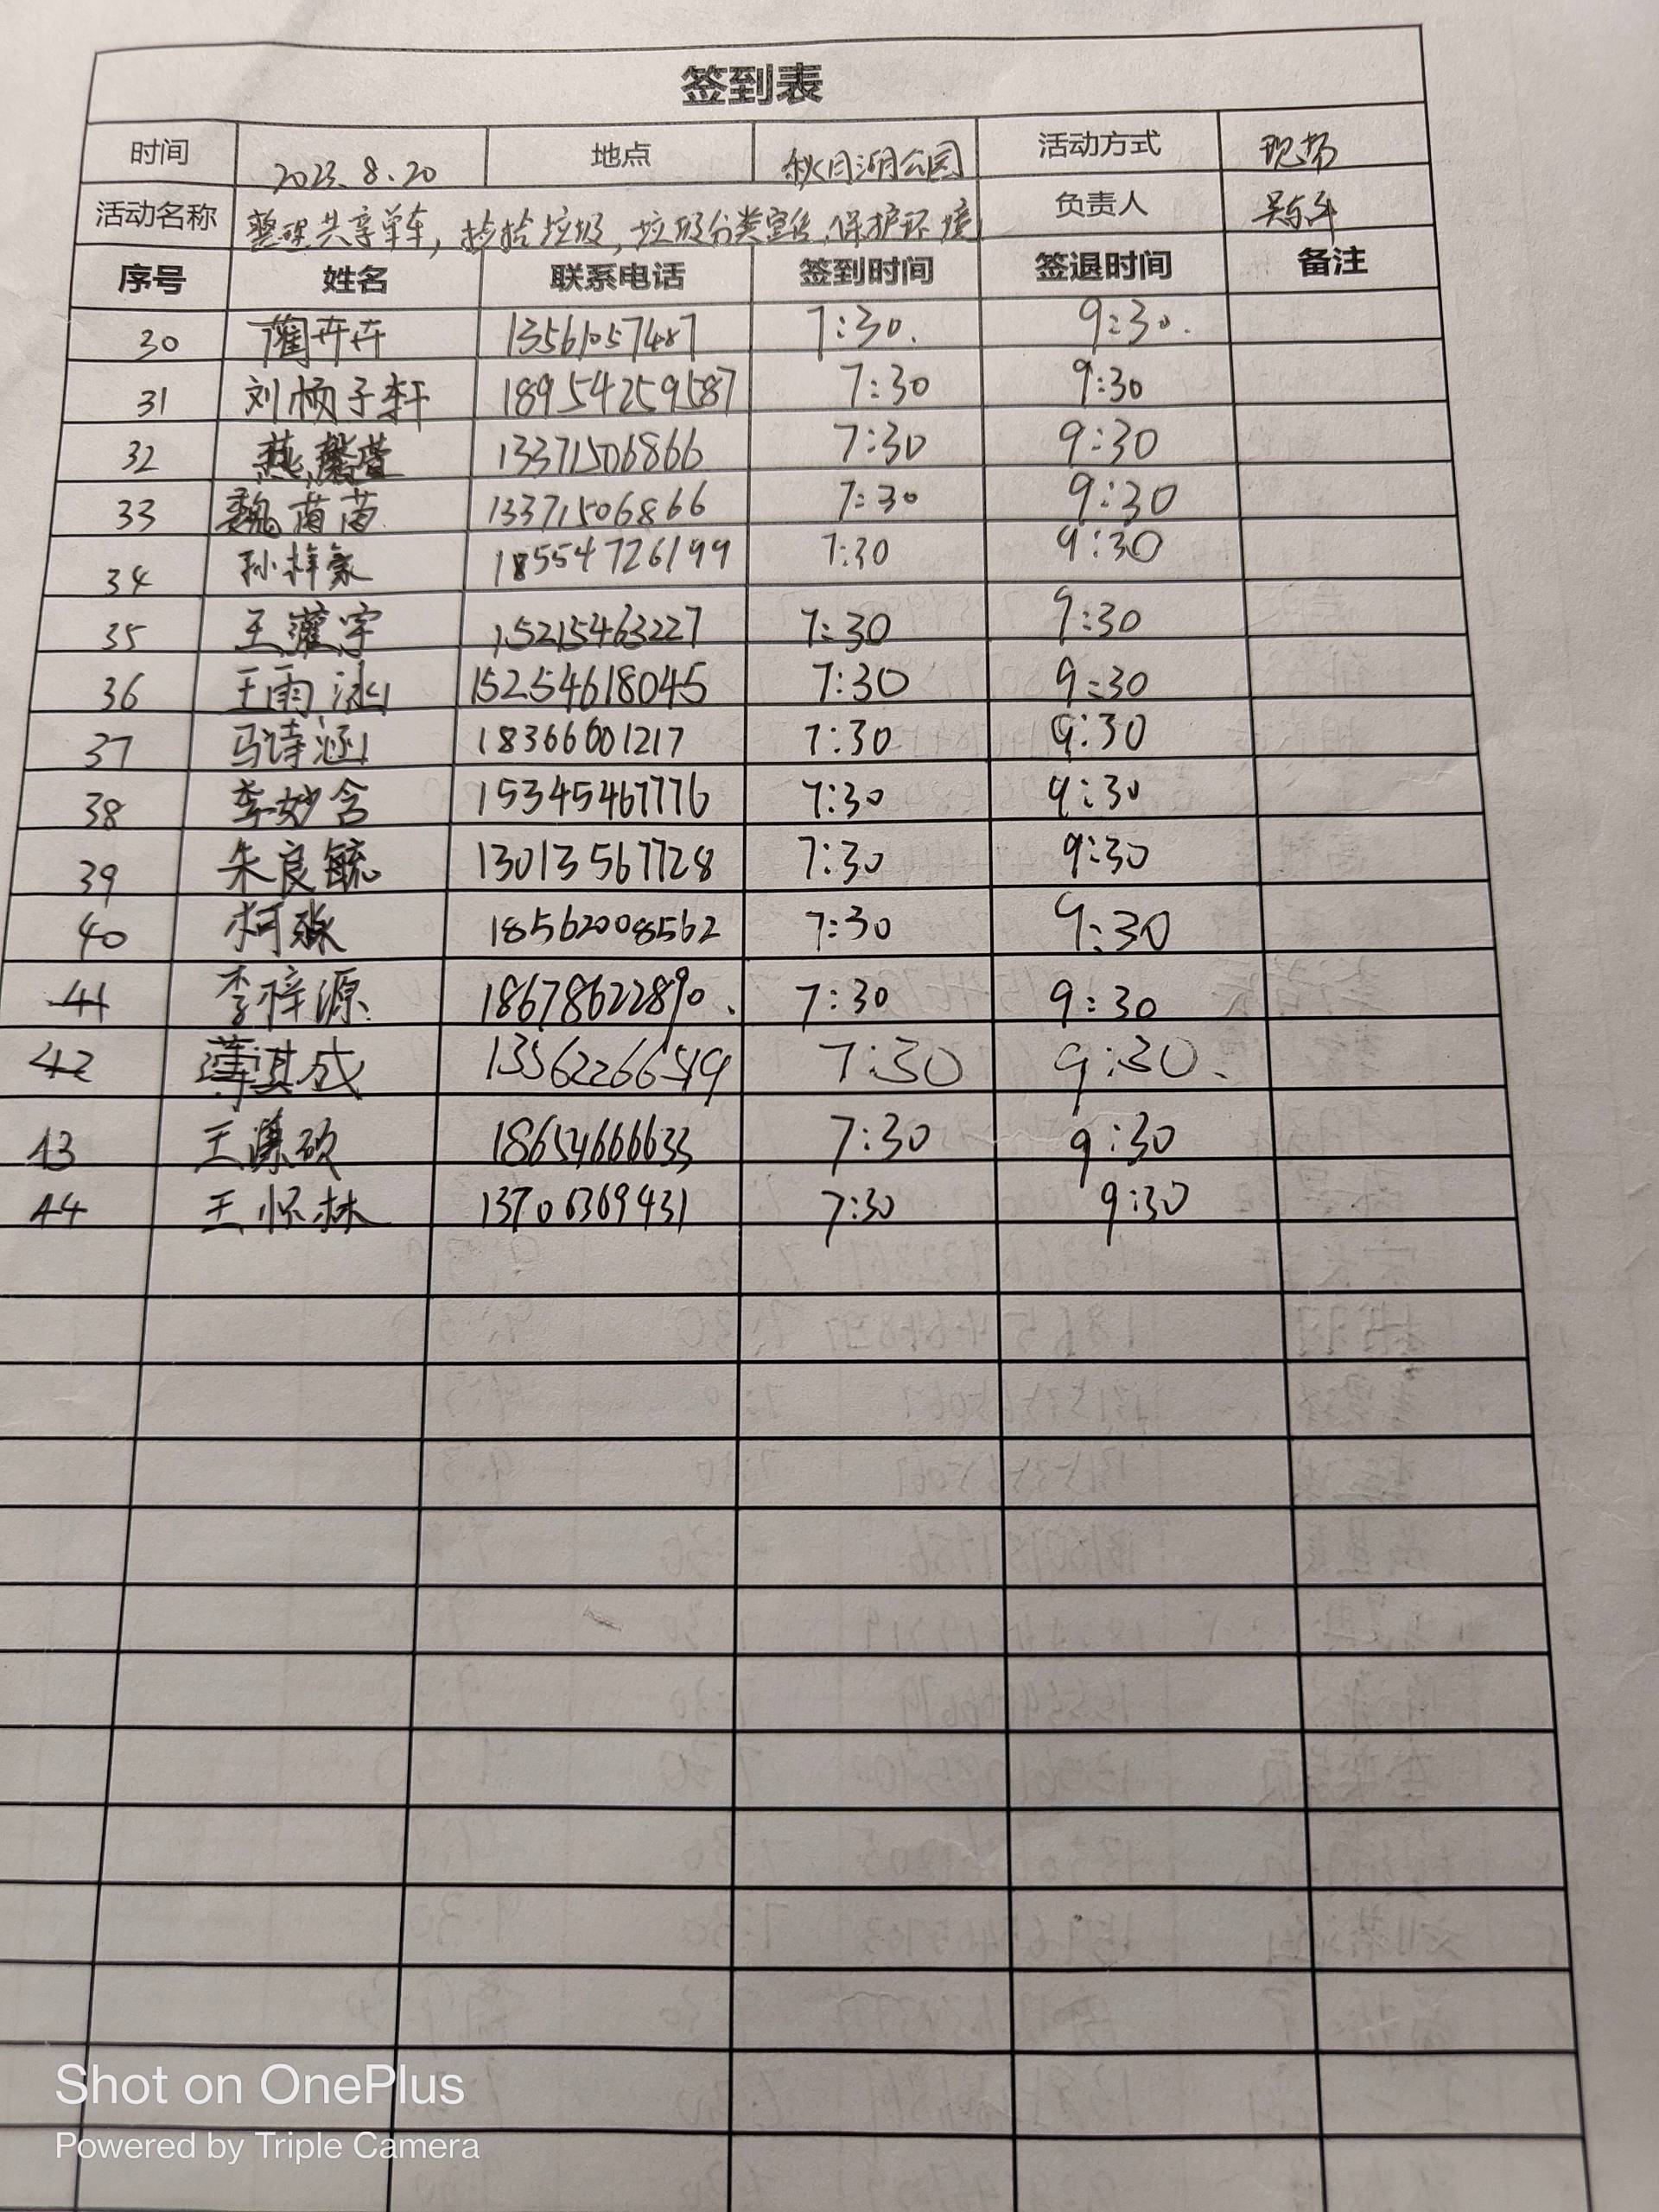 签到表
时间 2023.8.20 地点 秋月湖公园 活动方式 现场
活动名称 整理共享单车，捡拾垃圾，垃圾分类宣传，保护环境 负责人
序号 姓名 联系电话 签到时间 签退时间 备注
30 蔺卉卉 13561057487 7:30. 9:30.
31 刘杨子轩 18954259587 7:30 9:30
32 燕馨萱 13371506866 7:30 9:30
33 魏茵茵 13371506866 7:30 9:30
34 孙梓豪 18554726199 7:30 9:30
35 王灌宇 15215463227 7:30 9:30
36 王雨泌 15254618045 7:30 9:30
37 马诗涵 18366601217 7:30 9:30
38 李妙含 15345467776 7:30 9:30
39 朱良毓 13013567728 7:30 9:30
40 柯淼 18562008562 7:30 9:30
41 李梓源 18678622890. 7:30 9:30
42 薄淇成 13562266549 7:30 9:30.
43 王濂硕 18654666633 7:30 9:30
44 王怀林 13706369431 7:30 9:30
Shot on OnePlus
Powered by Triple Camera